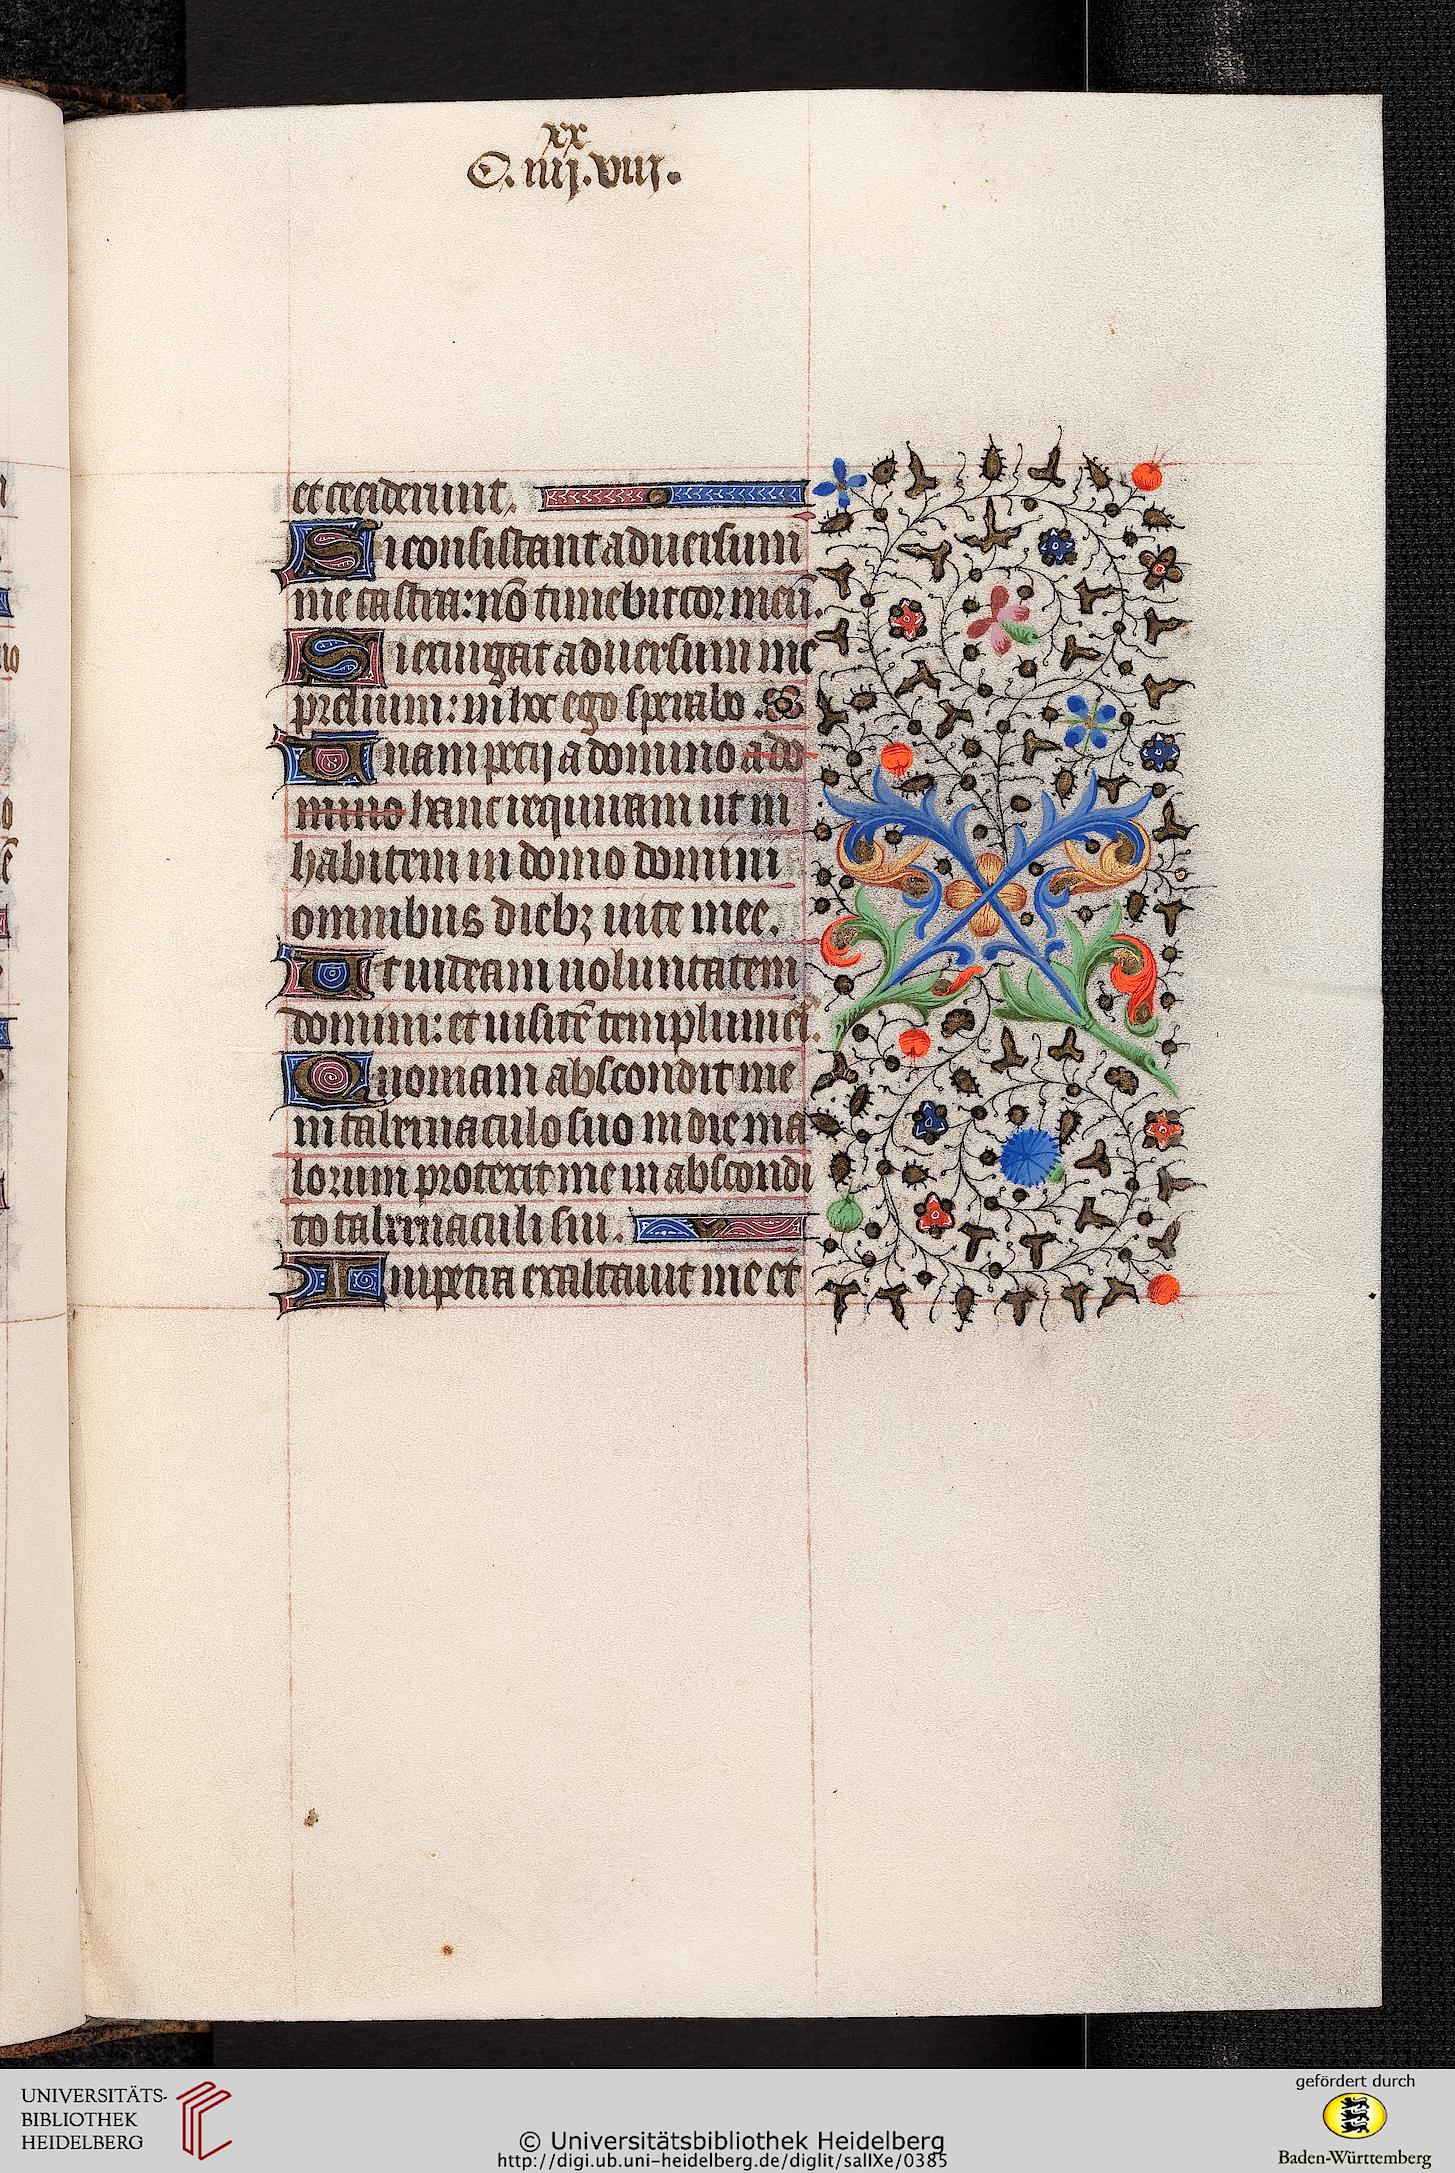 xx
C.iiij.viij.
et ceciderunt.
Si consistant adversum
me castra: nō timebit cor meū.
Si exurgat adversum me
prelium: in hoc ego sperabo.
Unam pecij a domino a do
mino hanc requiram ut in
habitem in domo domini
omnibus diebꝫ vite mee.
Ut videam voluntatem
domini: et visitē templum eiꝰ.
Quoniam abscondit me
in tabernaculo suo in die ma
lorum protexit me in abscondi
to tabernaculi sui.
In petra exaltavit me et
UNIVERSITÄTS-
BIBLIOTHEK
HEIDELBERG
© Universitätsbibliothek Heidelberg
http://digi.ub.uni-heidelberg.de/diglit/salIXe/0385
gefördert durch
Baden-Württemberg